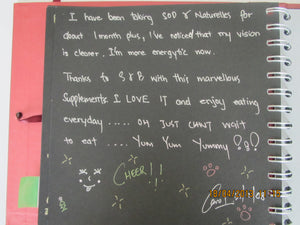 I have been taking SOD & Naturelles for
about 1 month plus, I've noticed that my vision
is clearer. I'm more energytic now.
Thanks to S & B with this marvellous
Supplements. I LOVE IT and enjoy eating
everyday ..... OH JUST CAN'T WAIT
to eat .... Yum Yum Yummy !!
CHEER!!